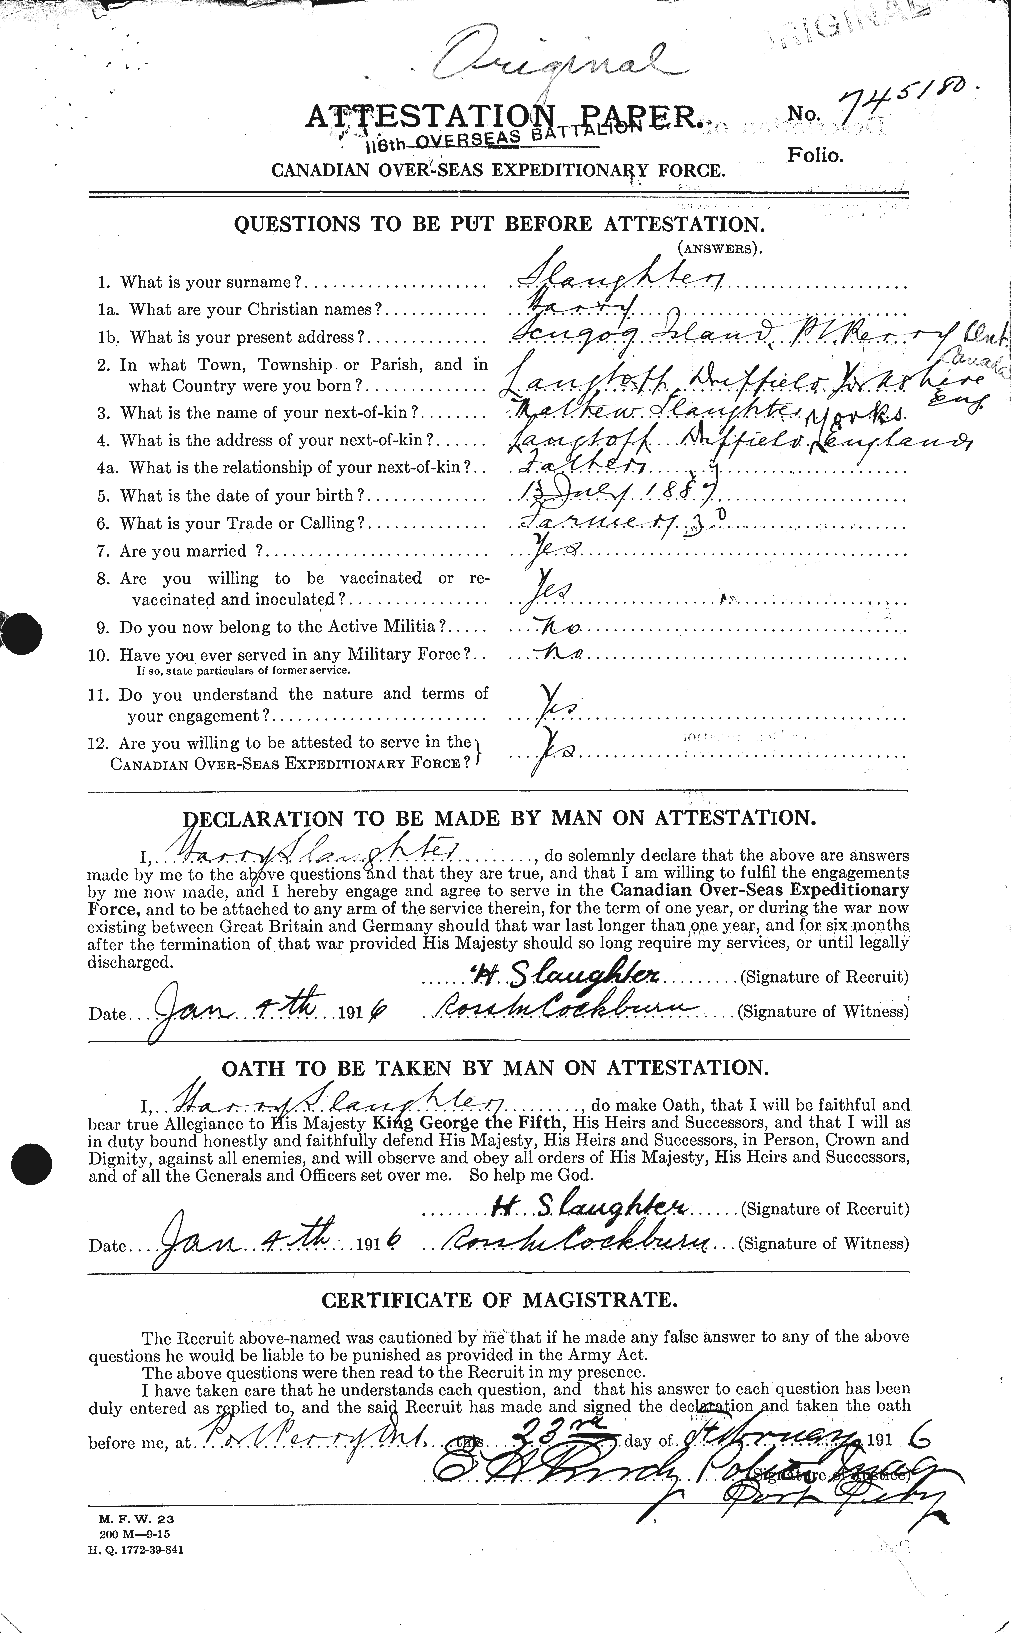 Original
ORIGINAL
ATTESTATION PAPER. No. 745180.
116th OVERSEAS BATTALION C.
Folio.
CANADIAN OVER-SEAS EXPEDITIONARY FORCE.
QUESTIONS TO BE PUT BEFORE ATTESTATION.
(ANSWERS).
1. What is your surname? Slaughter
1a. What are your Christian names? Harry
1b. What is your present address? Scugog Island, Pt. Perry Ont.
Canada
2. In what Town, Township or Parish, and in
what Country were you born? Langtoft Driffield Yorkshire
Eng
3. What is the name of your next-of-kin? Mathew Slaughter Yorks.
4. What is the address of your next-of-kin? Langtoft Driffield, England
4a. What is the relationship of your next-of-kin? Father
5. What is the date of your birth? 13 July 1887
6. What is your Trade or Calling? Farmer
7. Are you married? Yes
8. Are you willing to be vaccinated or re-
vaccinated and inoculated? Yes
9. Do you now belong to the Active Militia? No
10. Have you ever served in any Military Force? No
If so, state particulars of former service.
11. Do you understand the nature and terms of
your engagement? Yes
12. Are you willing to be attested to serve in the
CANADIAN OVER-SEAS EXPEDITIONARY FORCE? Yes
DECLARATION TO BE MADE BY MAN ON ATTESTATION.
I, Harry Slaughter, do solemnly declare that the above are answers
made by me to the above questions and that they are true, and that I am willing to fulfil the engagements
by me now made, and I hereby engage and agree to serve in the Canadian Over-Seas Expeditionary
Force, and to be attached to any arm of the service therein, for the term of one year, or during the war now
existing between Great Britain and Germany should that war last longer than one year, and for six months
after the termination of that war provided His Majesty should so long require my services, or until legally
discharged.
H Slaughter (Signature of Recruit)
Date Jan 4th 1916 Ross M Cockburn (Signature of Witness)
OATH TO BE TAKEN BY MAN ON ATTESTATION.
I, Harry Slaughter, do make Oath, that I will be faithful and
bear true Allegiance to His Majesty King George the Fifth, His Heirs and Successors, and that I will as
in duty bound honestly and faithfully defend His Majesty, His Heirs and Successors, in Person, Crown and
Dignity, against all enemies, and will observe and obey all orders of His Majesty, His Heirs and Successors,
and of all the Generals and Officers set over me. So help me God.
H Slaughter (Signature of Recruit)
Date Jan 4th 1916 Ross M Cockburn (Signature of Witness)
CERTIFICATE OF MAGISTRATE.
The Recruit above-named was cautioned by me that if he made any false answer to any of the above
questions he would be liable to be punished as provided in the Army Act.
The above questions were then read to the Recruit in my presence.
I have taken care that he understands each question, and that his answer to each question has been
duly entered as replied to, and the said Recruit has made and signed the declaration and taken the oath
before me, at Port Perry Ont. this 23rd day of February 1916
E H Purdy Police Mag (Signature of Justice)
Port Perry
M. F. W. 23
200 M—9-15
H. Q. 1772-39-841